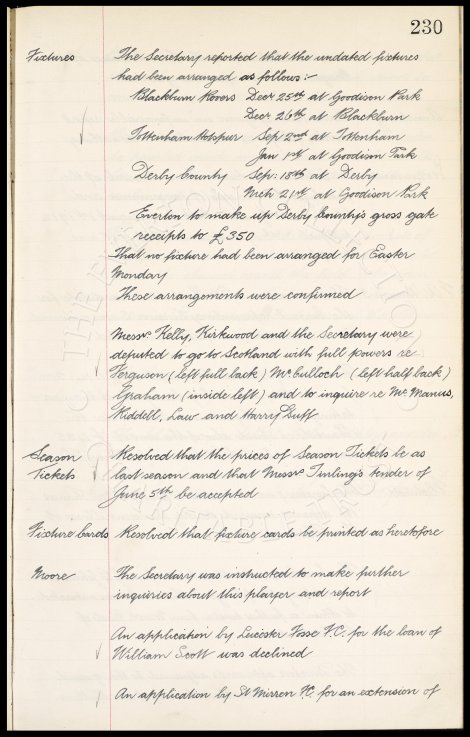 230
Fixtures The Secretary reported that the undated fixtures
had been arranged as follows:-
Blackburn Rovers Decr 25th at Goodison Park
Decr 26th at Blackburn
Tottenham Hotspur Sep 2nd at Tottenham
Jan 1st at Goodison Park
Derby County Sep: 18th at Derby
Mch 21st at Goodison Park
Everton to make up Derby County's gross gate
receipts to £350
That no fixture had been arranged for Easter
Monday
These arrangements were confirmed
Messrs Kelly, Kirkwood and the Secretary were
deputed to go to Scotland with full powers re
Ferguson (left full back) McCulloch (left half back)
Graham (inside left) and to inquire re McManus,
Riddell, Law and Harry Duff
Season Resolved that the prices of Season Tickets be as
Tickets last season and that Messrs Tinling's tender of
June 5th be accepted
Fixture Cards Resolved that fixture cards be printed as heretofore
Moore The Secretary was instructed to make further
inquiries about this player and report
An application by Leicester Fosse F.C. for the loan of
William Scott was declined
An application by St Mirren FC. for an extension of